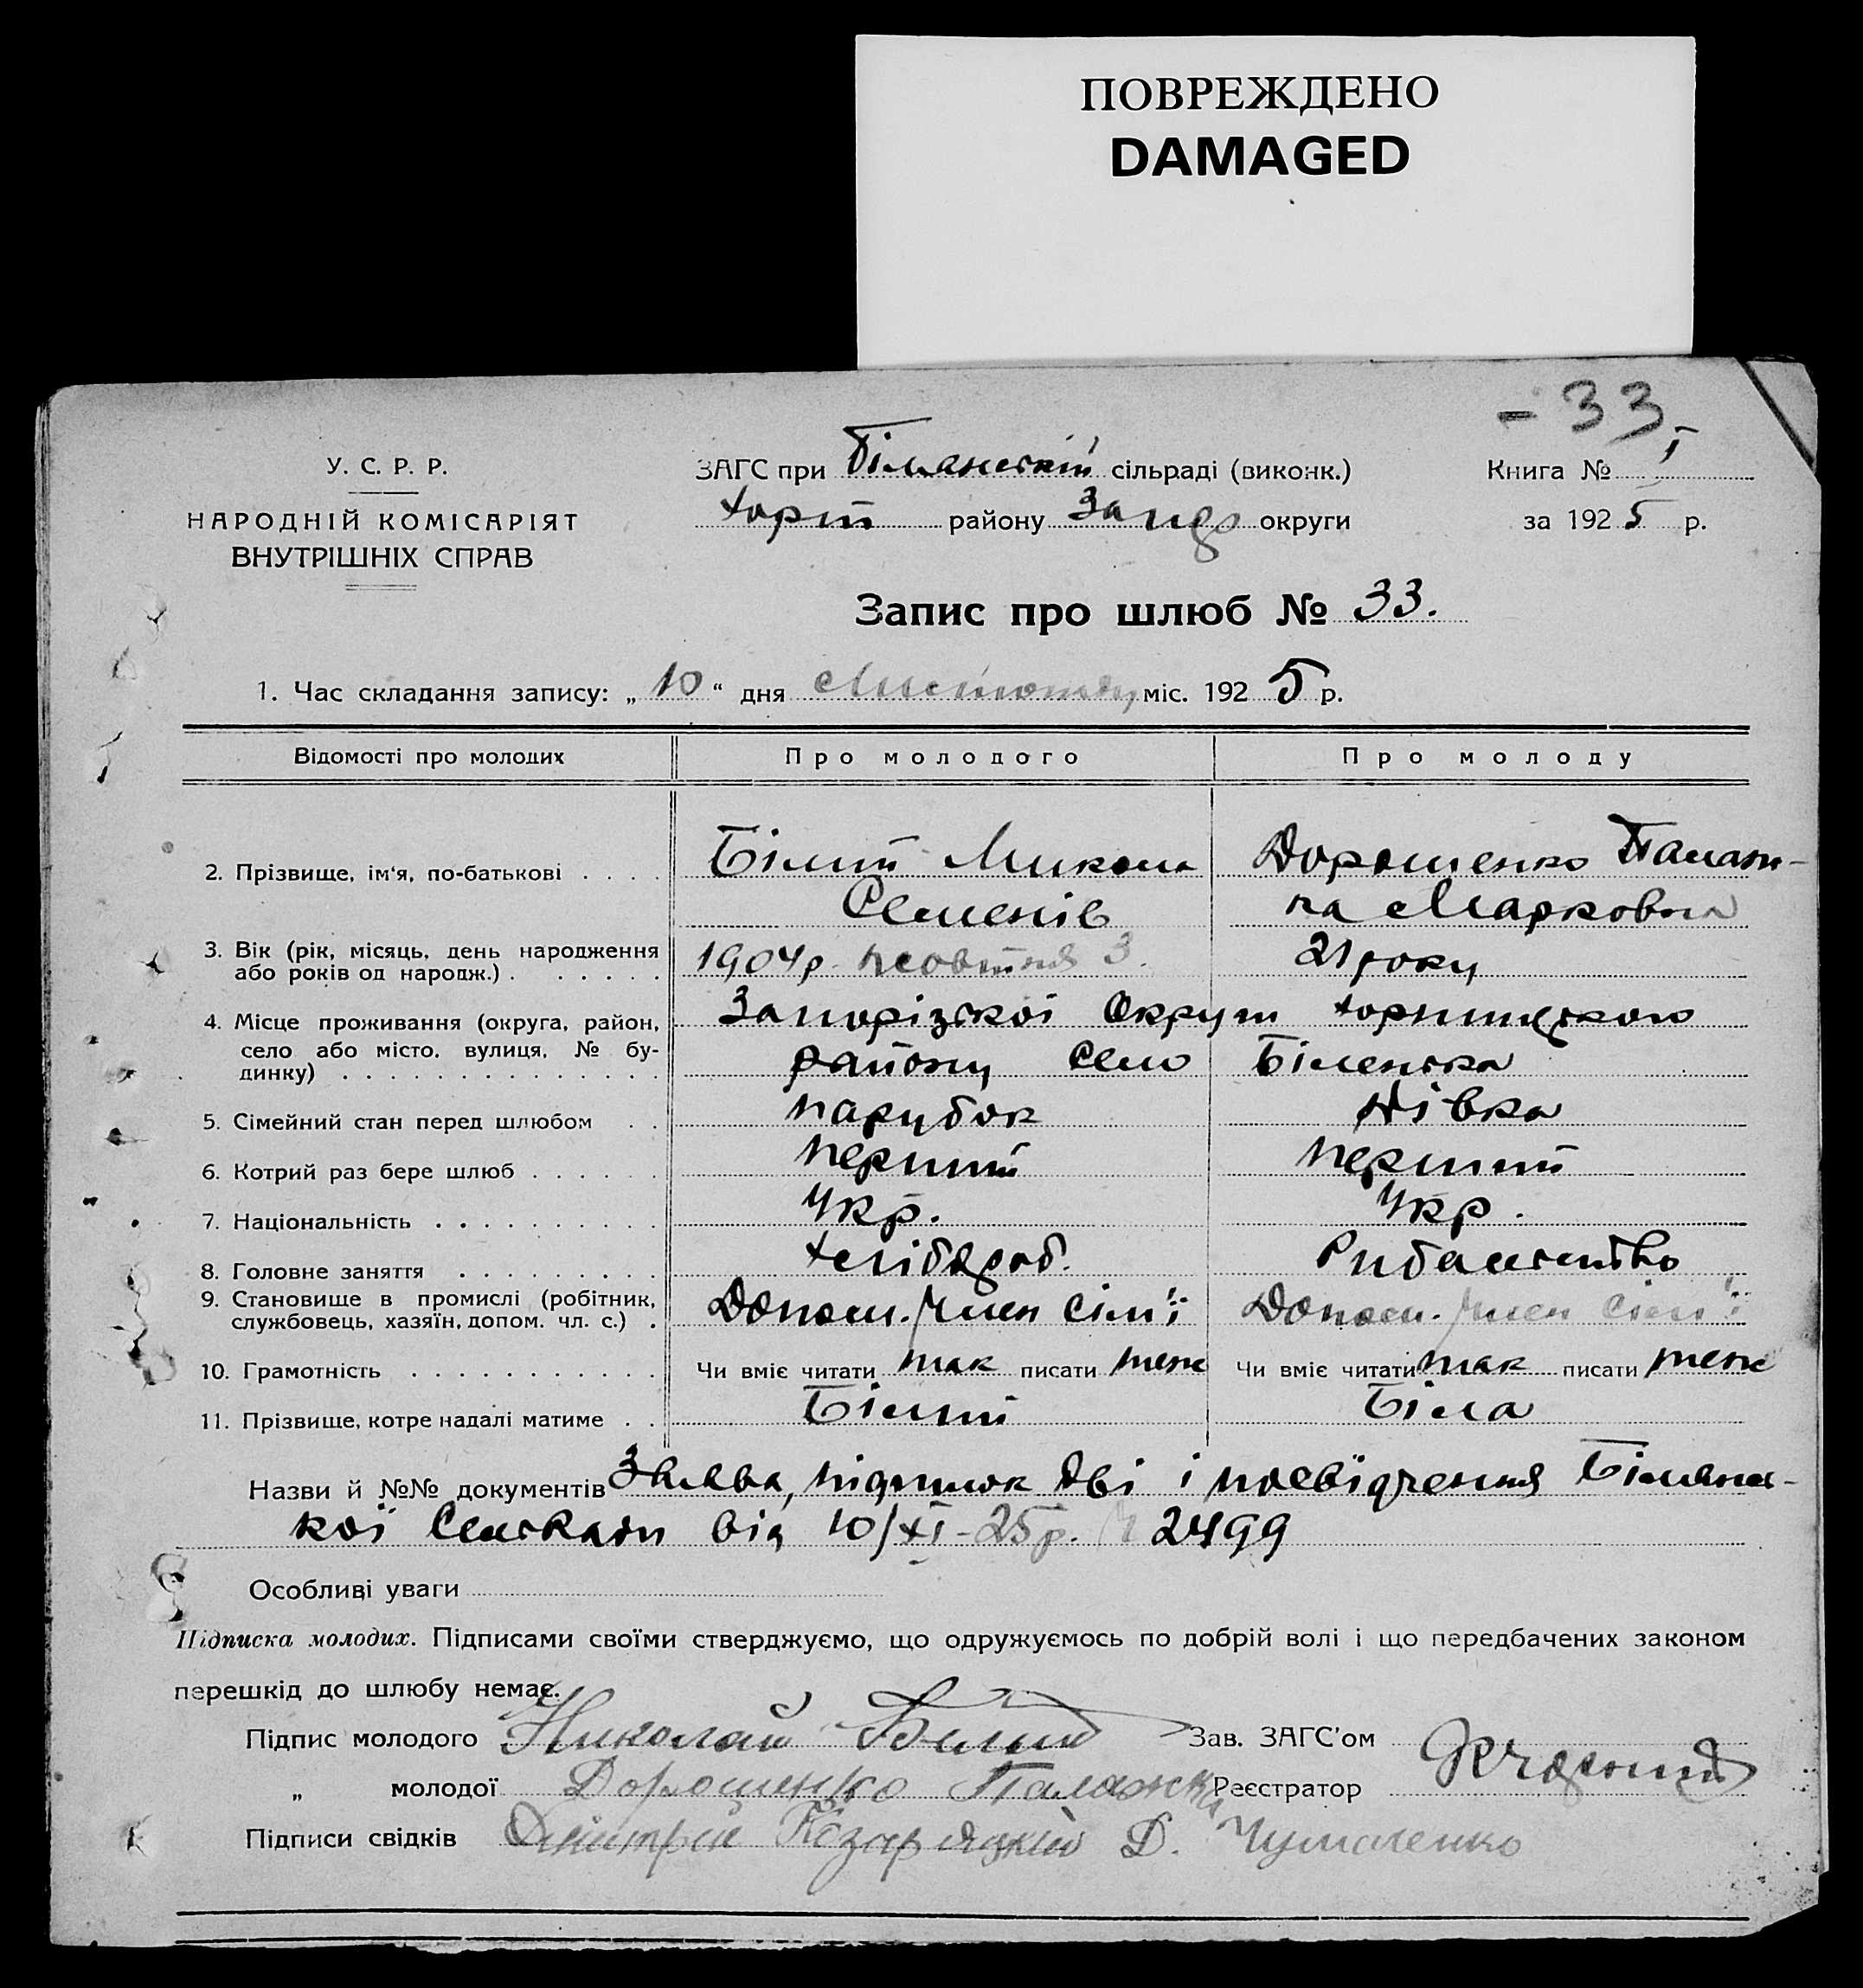 ПОВРЕЖДЕНО
DAMAGED
- 33
У. С. Р. Р.
НАРОДНІЙ КОМІСАРІЯТ
ВНУТРІШНІХ СПРАВ
ЗАГС при Біланскій сільраді (виконк.)
Хорт району Запор округи
Книга № I
за 1925 р.
Запис про шлюб № 33.
1. Час складання запису: „10“ дня Листопаду міс. 1925 р.
Відомості про молодих
Про молодого
Про молоду
2. Прізвище, ім'я, по-батькові . . . .
Білий Микола
Семенів
Дорошенко Палаж-
ка Марковна
3. Вік (рік, місяць, день народження
або років од народж.) . . . . . .
1904р. жовтня 3.
21 року
4. Місце проживання (округа, район,
село або місто, вулиця, № бу-
динку) . . . . . . . . . . . . . .
Запорізскої Округи Хортицького
району Село Біленска
5. Сімейний стан перед шлюбом . .
парубок
Дівка
6. Котрий раз бере шлюб . . . . . .
перший
перший
7. Національність . . . . . . . . . .
Укр.
Укр.
8. Головне заняття . . . . . . . . .
Хлібороб.
Рибальство
9. Становище в промислі (робітник,
службовець, хазяїн, допом. чл. с.) .
Допом. член сім'ї
Допом. член сім'ї
10. Грамотність . . . . . . . . . . .
Чи вміє читати так писати теж
Чи вміє читати так писати теж
11. Прізвище, котре надалі матиме . .
Білий
Біла
Назви й №№ документів Заява, підписок дві і посвідчення Біланс-
кої Сельради від 10/XI-25р. № 2499
Особливі уваги
Підписка молодих. Підписами своїми стверджуємо, що одружуємось по добрій волі і що передбачених законом
перешкід до шлюбу немає.
Підпис молодого Николай Белый
Зав. ЗАГС'ом
„ молодої Дорошенко Палажка
Реєстратор
Підписи свідків Дмитрий Д. Чумаченко